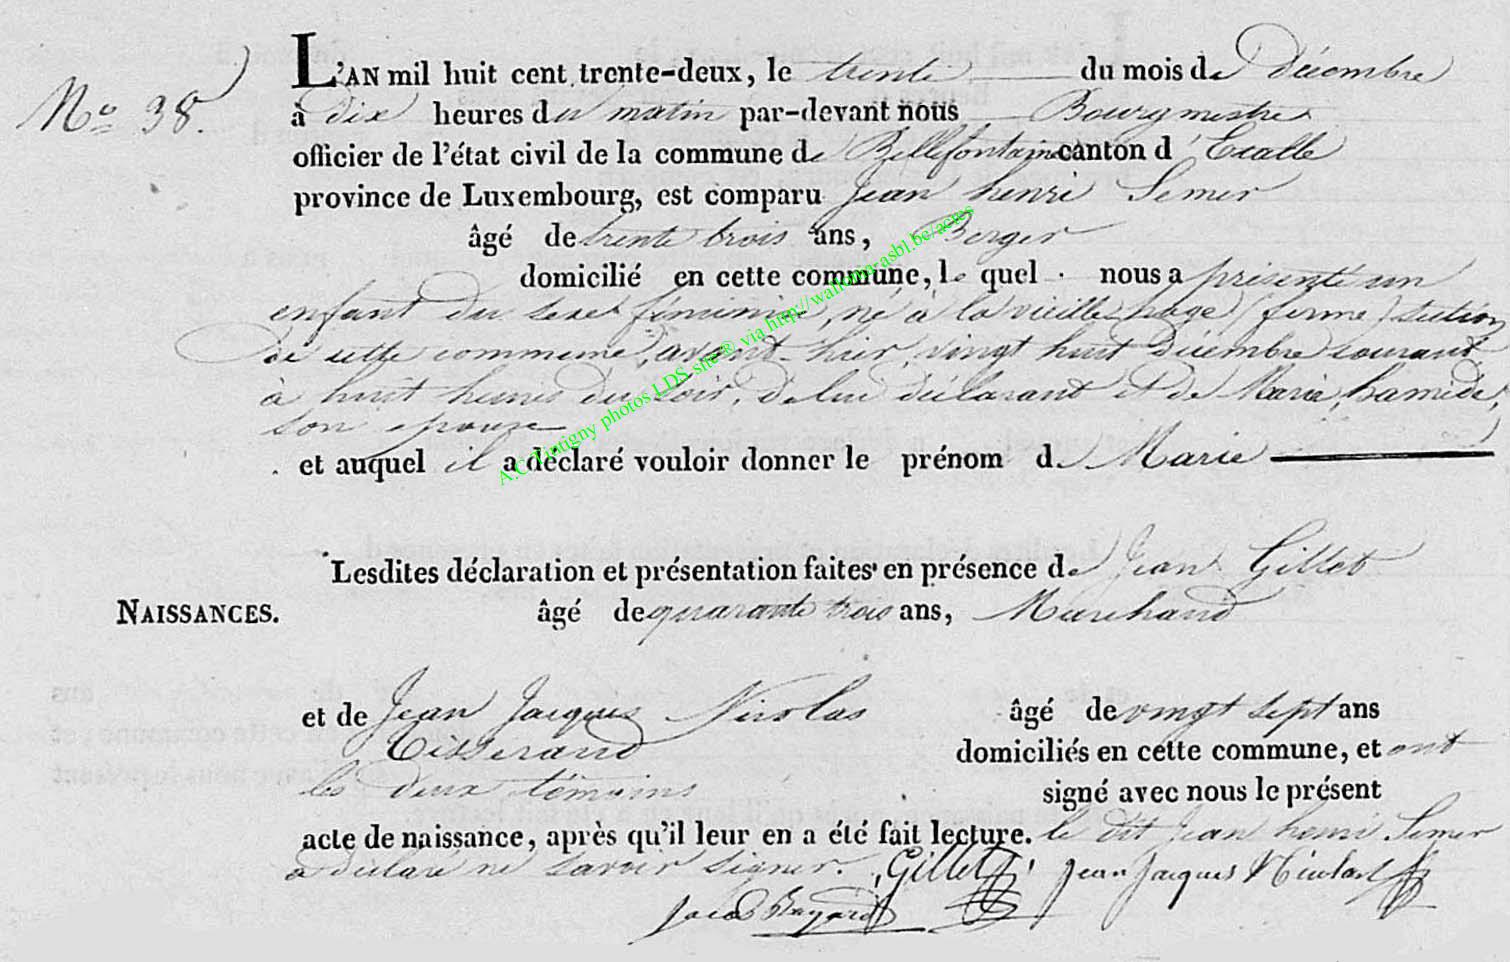 No 38.
L'AN mil huit cent trente-deux, le trente du mois de décembre
à dix heures du matin par-devant nous Bourgmestre
officier de l'état civil de la commune de Bellefontaine canton d'Etalle
province de Luxembourg, est comparu Jean henri Semer
âgé de trente trois ans, Berger
domicilié en cette commune, le quel nous a présenté un
enfant du sexe féminin, né à la vieille hage (ferme) section
de cette commune, avant-hier, vingt huit décembre courant
à huit heures du soir, de lui déclarant et de Marie, hamede,
son épouse
et auquel il a déclaré vouloir donner le prénom de Marie
Lesdites déclaration et présentation faites en présence de Jean Gillet
NAISSANCES.
âgé de quarante trois ans, Marchand
et de Jean Jacques Nicolas âgé de vingt sept ans
Tisserand domiciliés en cette commune, et ont
les deux témoins signé avec nous le présent
acte de naissance, après qu'il leur en a été fait lecture. le dit Jean henri Semer
a déclaré ne savoir signer. Gillet Jean Jacques Nicolas
A.C. Tintigny photos LDS site® via http://wallonia-asbl.be/actes